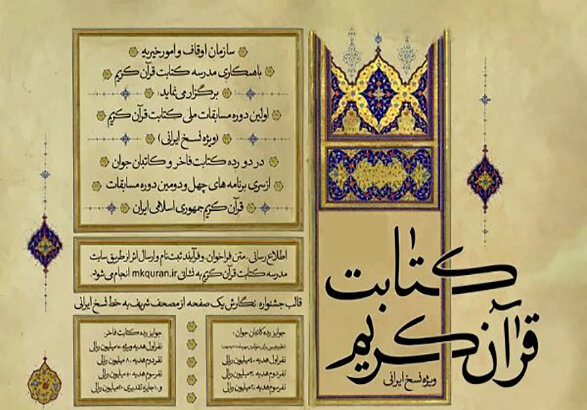 کتابت
قرآن کریم
ویژه نسخ ایرانی
سازمان اوقاف و امور خیریه
با همکاری مدرسه کتابت قرآن کریم
برگزار می‌نماید:
اولین دوره مسابقات ملی کتابت قرآن کریم
(ویژه نسخ ایرانی)
در دو رده کتابت فاخر و کاتبان جوان
از سری برنامه های چهل و دومین دوره مسابقات
قرآن کریم جمهوری اسلامی ایران
اطلاع رسانی، متن فراخوان و فرآیند ثبت‌نام و ارسال اثر از طریق سایت
مدرسه کتابت قرآن کریم به نشانی mkquran.ir انجام می‌شود.
قالب جشنواره: نگارش یک صفحه از مصحف شریف به خط نسخ ایرانی
جوایز رده کاتبان جوان:
نفر اول هدیه میلیون ریالی
نفر دوم هدیه میلیون ریالی
نفر سوم هدیه میلیون ریالی
جوایز رده کتابت فاخر:
نفر اول هدیه میلیون ریالی
نفر دوم هدیه ۸۰ میلیون ریالی
نفر سوم هدیه میلیون ریالی
و ۱۰ جایزه تقدیری میلیون ریالی